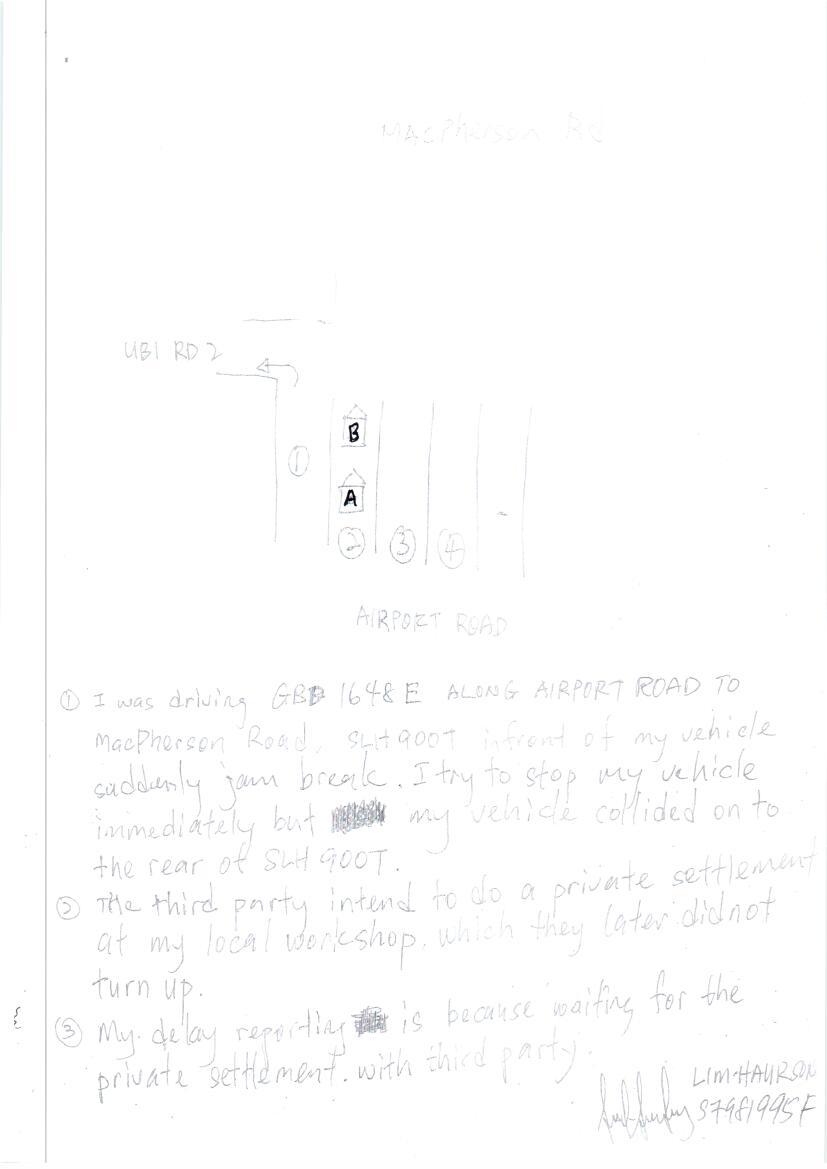 MACPherson Rd
UBI RD 2
B
①
A
② ③ ④
AIRPORT ROAD
① I was driving GBD 1648 E ALONG AIRPORT ROAD TO
MacPherson Road, SLH 900T infront of my vehicle
suddenly jam break. I try to stop my vehicle
immediately but my vehicle collided on to
the rear of SLH 900T.
② The third party intend to do a private settlement
at my local workshop, which they later did not
turn up.
③ My delay reporting is because waiting for the
private settlement. with third party.
LIM HAURSON
S7981995F